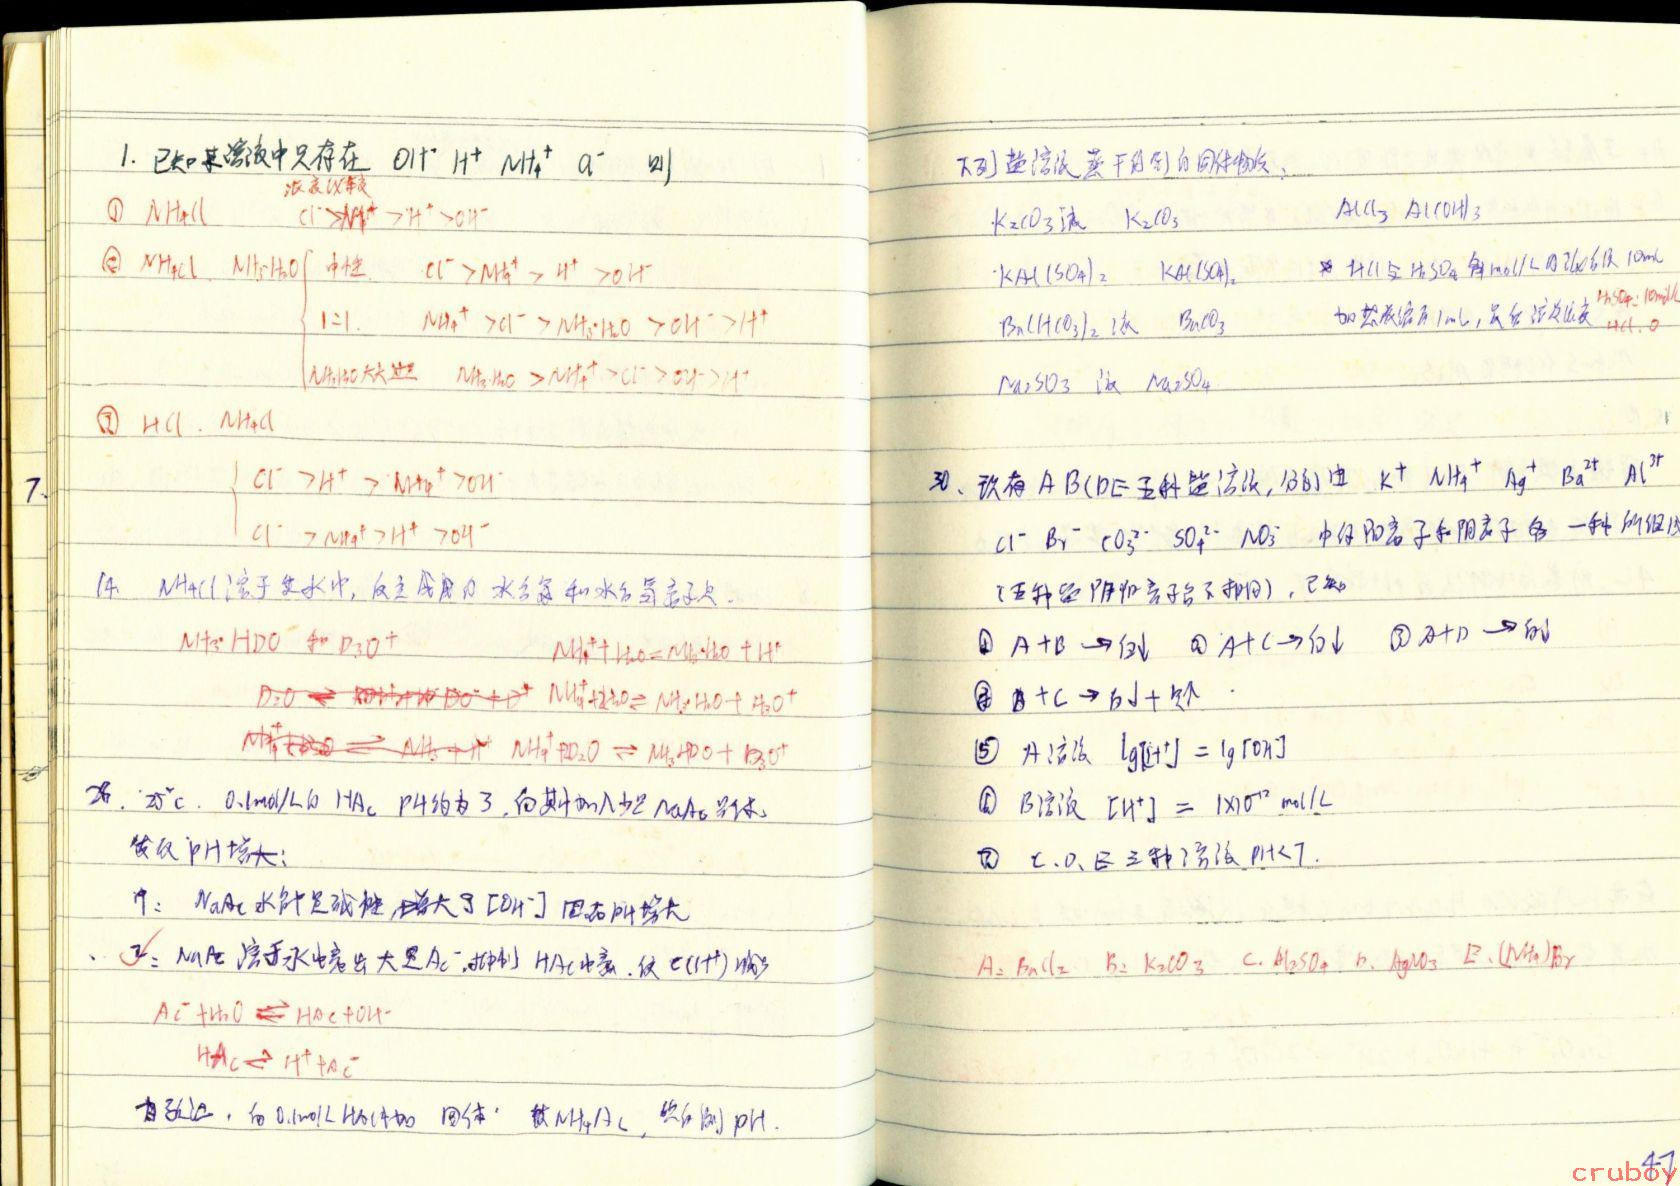 1. 已知某溶液中只存在 OH⁻ H⁺ NH₄⁺ Cl⁻ 则
浓度比较
① NH₄Cl Cl⁻ > NH₄⁺ > H⁺ > OH⁻
② NH₄Cl NH₃·H₂O 中性 Cl⁻ > NH₄⁺ > H⁺ > OH⁻
1:1. NH₄⁺ > Cl⁻ > NH₃·H₂O > OH⁻ > H⁺
NH₃·H₂O大大过量 NH₃·H₂O > NH₄⁺ > Cl⁻ > OH⁻ > H⁺
③ HCl . NH₄Cl
Cl⁻ > H⁺ > NH₄⁺ > OH⁻
7
Cl⁻ > NH₄⁺ > H⁺ > OH⁻
14. NH₄Cl溶于重水中, 反应生成的水合氨和水合氢离子为.
NH₃·HDO 和 D₃O⁺ NH₄⁺+H₂O=NH₃·H₂O+H⁺
D₂O ⇌ NH₄⁺+2H₂O ⇌ NH₃·H₂O+H₃O⁺
NH₄⁺+D₂O ⇌ NH₃·HDO+D₃O⁺
25°C. 0.1mol/L的 HAc pH约为3, 向其中加入少量NaAc晶体,
发现pH增大:
甲: NaAc水解呈碱性,增大了[OH⁻]因而pH增大
乙: NaAc溶于水电离出大量Ac⁻,抑制HAc电离.使c(H⁺)减少
Ac⁻+H₂O ⇌ HAc+OH⁻
HAc ⇌ H⁺+Ac⁻
向0.1mol/L HAc中加 固体 NH₄Ac, 然后测pH.
下列盐溶液蒸干得到的固体物质:
K₂CO₃液 K₂CO₃ AlCl₃ Al(OH)₃
KAl(SO₄)₂ KAl(SO₄)₂ * HCl与H₂SO₄各1mol/L的混合液10mL
Ba(HCO₃)₂液 BaCO₃ 加热浓缩至1mL, 最后溶液浓度 H₂SO₄:10mol/L HCl:0
Na₂SO₃液 Na₂SO₄
30、现有ABCDE五种盐溶液,分别由 K⁺ NH₄⁺ Ag⁺ Ba²⁺ Al³⁺
Cl⁻ Br⁻ CO₃²⁻ SO₄²⁻ NO₃⁻ 中任阳离子和阴离子各一种所组成
(五种盐阴阳离子各不相同), 已知
① A+B→白↓ ② A+C→白↓ ③ A+D→白↓
④ B+C→白↓+气↑
⑤ A溶液 lg[H⁺] = lg[OH⁻]
⑥ B溶液 [H⁺] = 1×10⁻¹² mol/L
⑦ C.D.E三种溶液pH<7.
A: BaCl₂ B: K₂CO₃ C. Al₂SO₄ D. AgNO₃ E. (NH₄)Br
47
cruboy